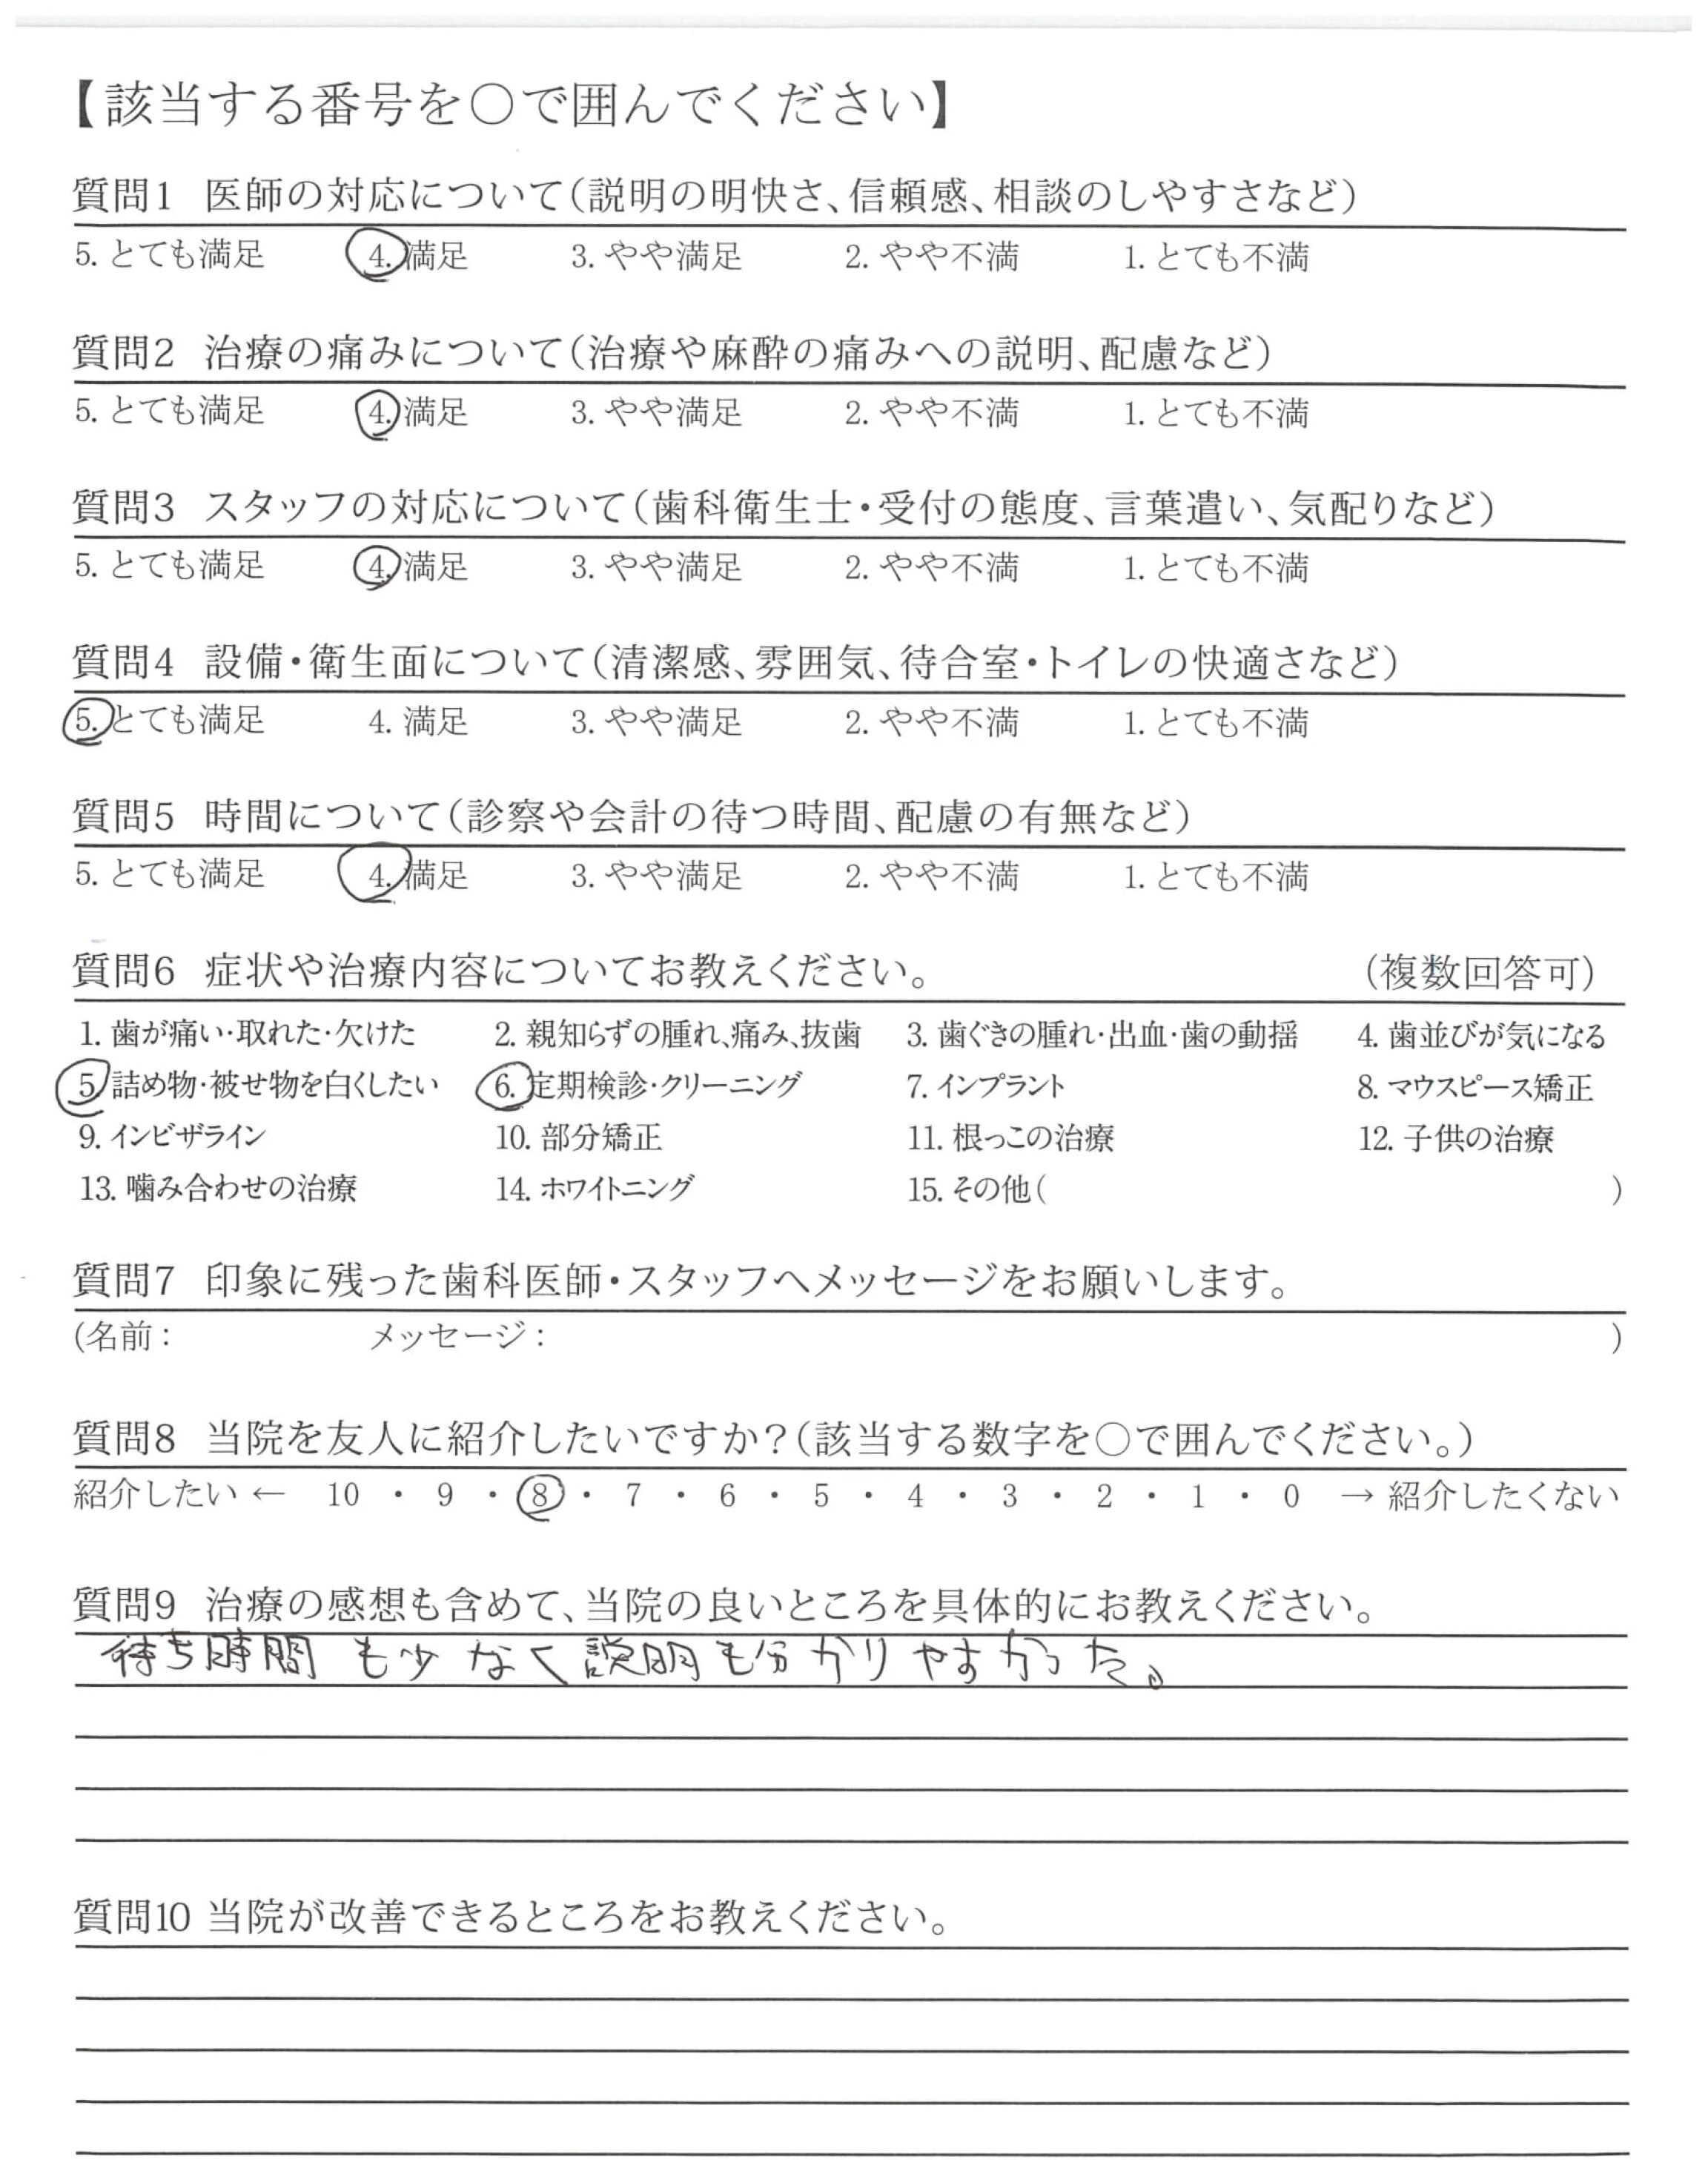 【該当する番号を〇で囲んでください】
質問1 医師の対応について(説明の明快さ、信頼感、相談のしやすさなど)
5. とても満足 4. 満足 3. やや満足 2. やや不満 1. とても不満
質問2 治療の痛みについて(治療や麻酔の痛みへの説明、配慮など)
5. とても満足 4. 満足 3. やや満足 2. やや不満 1. とても不満
質問3 スタッフの対応について(歯科衛生士・受付の態度、言葉遣い、気配りなど)
5. とても満足 4. 満足 3. やや満足 2. やや不満 1. とても不満
質問4 設備・衛生面について(清潔感、雰囲気、待合室・トイレの快適さなど)
5. とても満足 4. 満足 3. やや満足 2. やや不満 1. とても不満
質問5 時間について(診察や会計の待つ時間、配慮の有無など)
5. とても満足 4. 満足 3. やや満足 2. やや不満 1. とても不満
質問6 症状や治療内容についてお教えください。 (複数回答可)
1. 歯が痛い・取れた・欠けた 2. 親知らずの腫れ、痛み、抜歯 3. 歯ぐきの腫れ・出血・歯の動揺 4. 歯並びが気になる
5. 詰め物・被せ物を白くしたい 6. 定期検診・クリーニング 7. インプラント 8. マウスピース矯正
9. インビザライン 10. 部分矯正 11. 根っこの治療 12. 子供の治療
13. 噛み合わせの治療 14. ホワイトニング 15. その他( )
質問7 印象に残った歯科医師・スタッフへメッセージをお願いします。
(名前： メッセージ： )
質問8 当院を友人に紹介したいですか?(該当する数字を〇で囲んでください。)
紹介したい ← 10 ・ 9 ・ 8 ・ 7 ・ 6 ・ 5 ・ 4 ・ 3 ・ 2 ・ 1 ・ 0 → 紹介したくない
質問9 治療の感想も含めて、当院の良いところを具体的にお教えください。
待ち時間も少なく説明も分かりやすかった。
質問10 当院が改善できるところをお教えください。